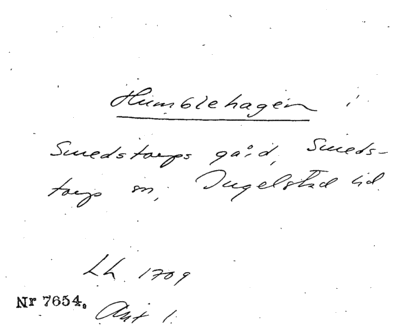 Humblehagen i
Smedstorps gård, Smeds-
torp sn, Ingelstad hd
Lh. 1709
Nr 7654. Akt 1.